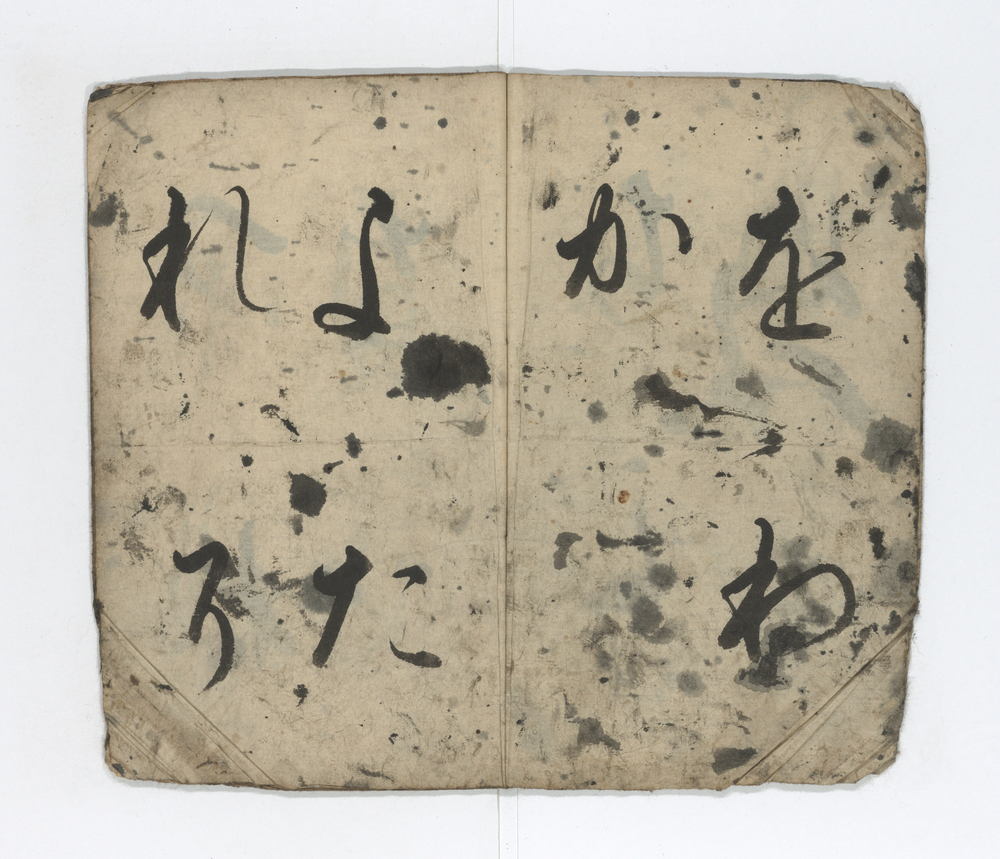 をわ
か
よた
れそ